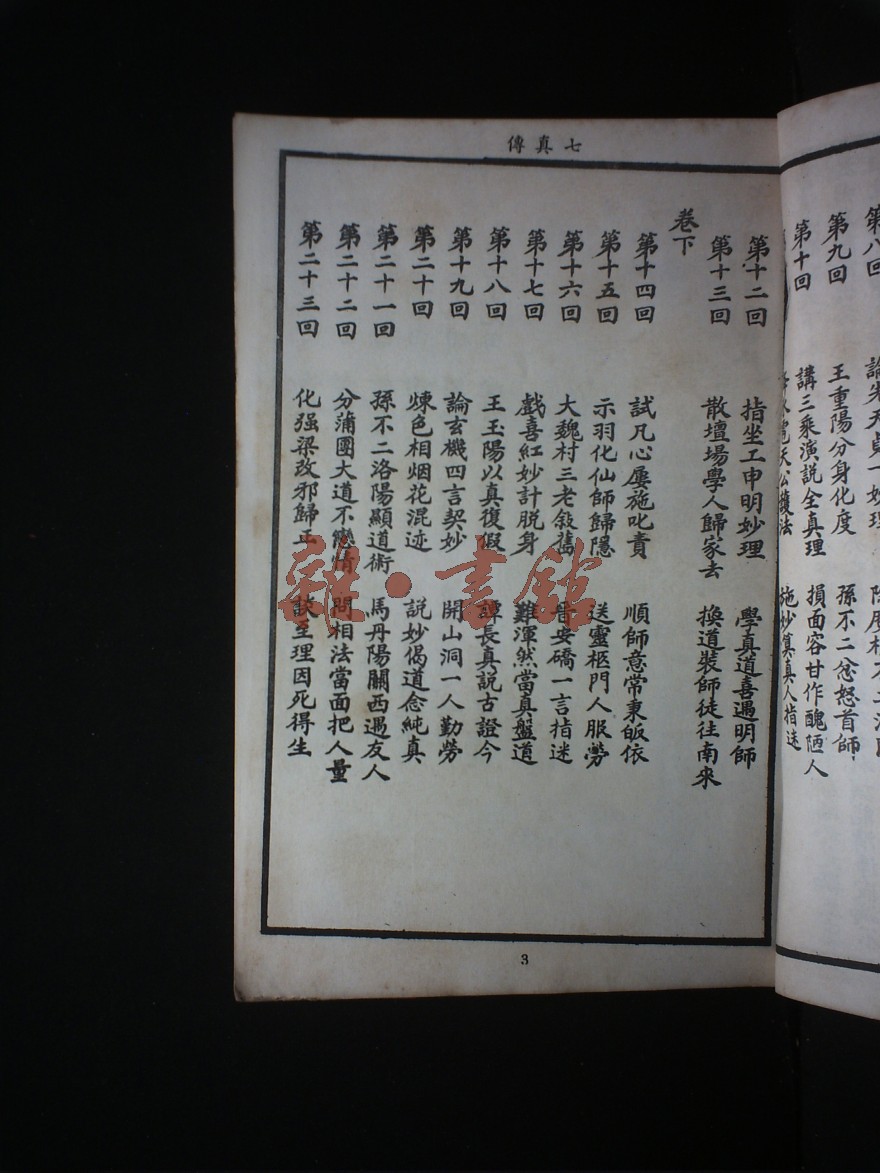 第八回
第九回 王重陽分身化度 孫不二忿怒首師
第十回 講三乘演説全真理 損面容甘作醜陋人
天公護法 施妙算真人指迷
七真傳
第十二回 指坐工申明妙理 學真道喜遇明師
第十三回 散壇場學人歸家去 換道裝師徒往南來
卷下
第十四回 試凡心屢施叱責 順師意常秉皈依
第十五回 示羽化仙師歸隱 送靈柩門人服勞
第十六回 大魏村三老敍舊 晋安橋一言指迷
第十七回 戲喜紅妙計脱身 難渾然當真盤道
第十八回 王玉陽以真復假 譚長真説古證今
第十九回 論玄機四言契妙 開山洞一人勤勞
第二十回 煉色相烟花混迹 説妙偈道念純真
第二十一回 孫不二洛陽顯道術 馬丹陽關西遇友人
第二十二回 分蒲團大道不戀情 問相法當面把人量
第二十三回 化强梁改邪歸正 談至理因死得生
3
雜·書館